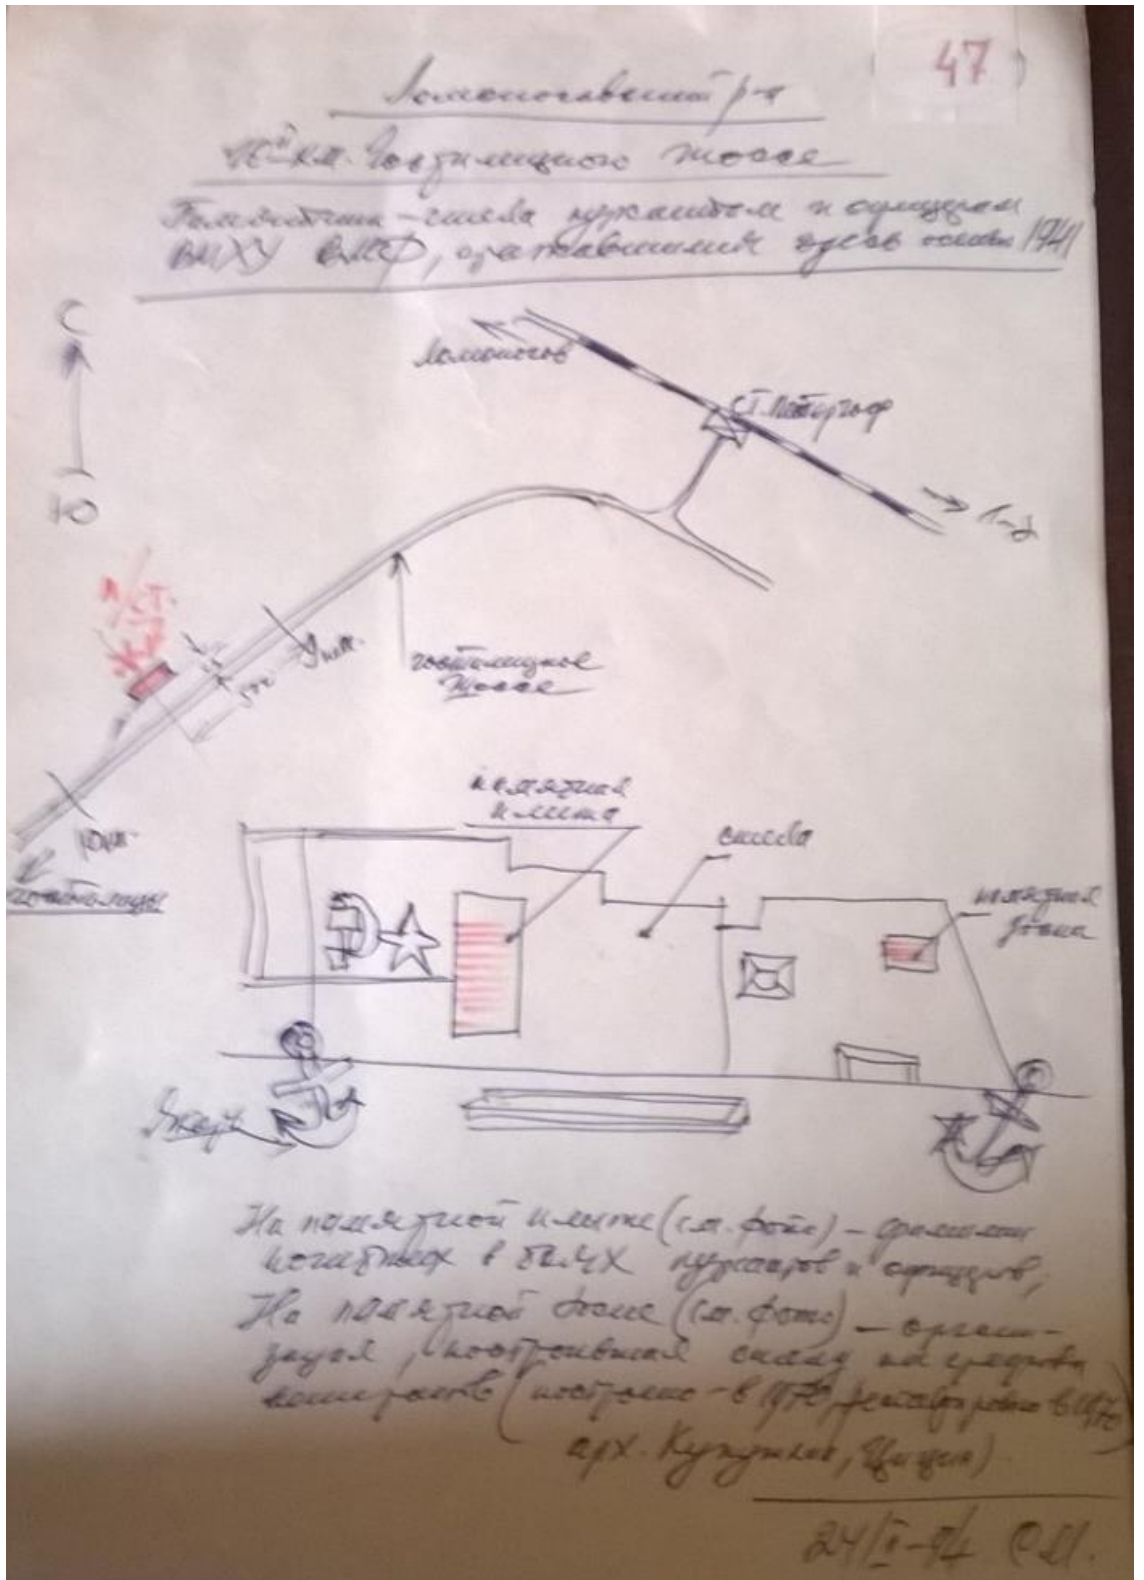 47
Ломоносовский р-н
км. Гостилицкого шоссе
Памятник-стела курсантам и офицерам
ВМХУ ВМФ, сражавшимся здесь осенью 1941
С
Ломоносов
СТ. Петергоф
Л-д
Ю
П/СТ.
9 км.
Гостилицкое
шоссе
10 км.
Гостилицы
памятная
плита
стела
памятная
доска
Якорь
На памятной плите (см. фото) – фамилии
погибших в боях курсантов и офицеров,
На памятной доске (см. фото) – органи-
зация, построившая стелу на средства
(построено - в
арх. )
24/II-94 С.М.